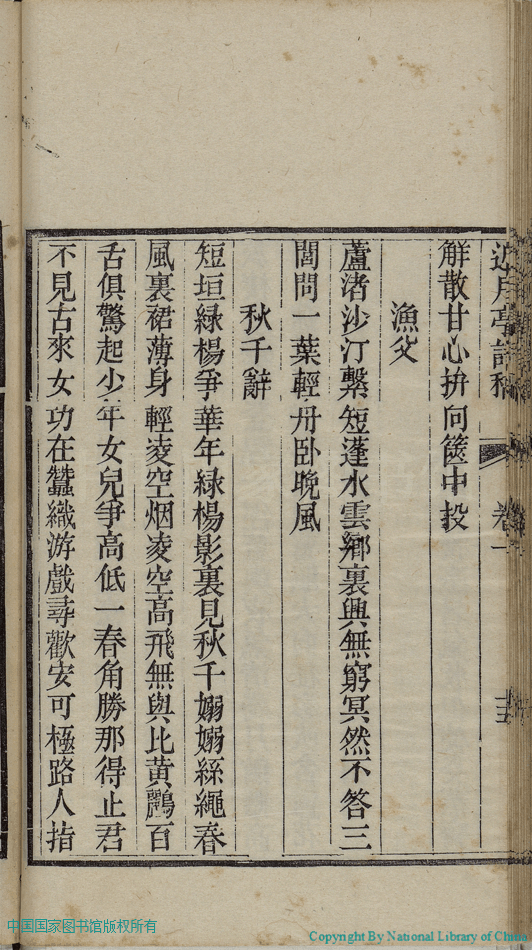 近月亭詩稿 卷一
解散甘心拚向篋中投
漁父
蘆渚沙汀繫短蓬水雲鄉裏興無窮冥然不答三
閭問一葉輕舟卧晚風
秋千辭
短垣綠楊爭華年綠楊影裏見秋千嫋嫋絲繩春
風裏裙薄身輕凌空烟凌空高飛無與比黃鸝百
舌俱驚起少年女兒爭高低一春角勝那得止君
不見古來女功在蠶織游戲尋歡安可極路人指
中国国家图书馆版权所有
Copyright By National Library of China